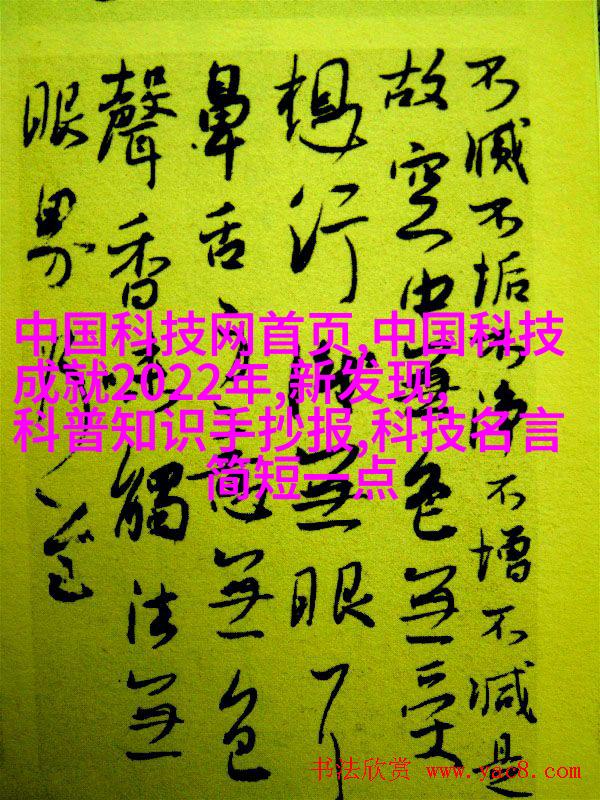 不滅不垢不淨不增不減是
故空中無色無受
想行識無眼耳
鼻舌身意無色
聲香味觸法無
眼界
中国科技网首页,中国科技
成就2022年,新发现,
科普知识手抄报,科技名言
简短一点
书法欣赏 www.yac8.com